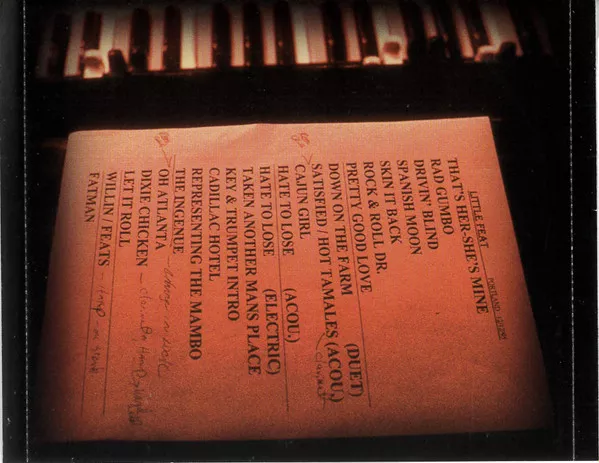 LITTLE FEAT
PORTLAND
THAT'S HER-SHE'S MINE
RAD GUMBO
DRIVIN' BLIND
SPANISH MOON
SKIN IT BACK
ROCK & ROLL DR.
PRETTY GOOD LOVE (DUET)
DOWN ON THE FARM
SATISFIED / HOT TAMALES (ACOU.)
clarinet
CAJUN GIRL
HATE TO LOSE (ACOU.)
HATE TO LOSE (ELECTRIC)
TAKEN ANOTHER MANS PLACE
KEY & TRUMPET INTRO
CADILLAC HOTEL
REPRESENTING THE MAMBO
THE INGENUE
OH ATLANTA
DIXIE CHICKEN
LET IT ROLL
WILLIN / FEATS
FATMAN